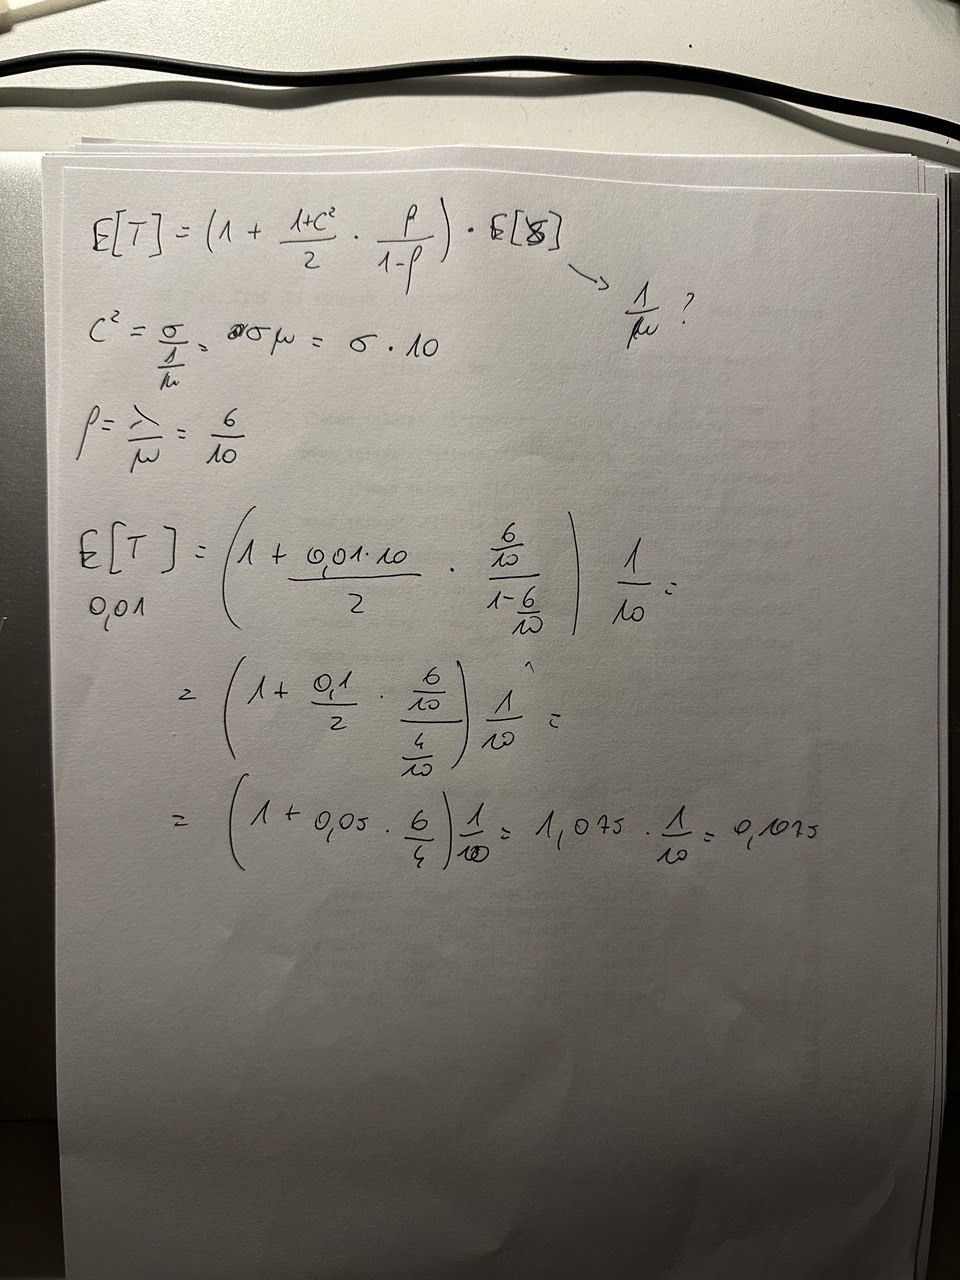 E[T] = (1 + (1+C²)/2 · ρ/(1-ρ)) · E[S]
1/μ ?
C² = σ/(1/μ) = σμ = σ · 10
ρ = λ/μ = 6/10
E[T] = (1 + (0,01·10)/2 · (6/10)/(1-6/10)) 1/10 =
0,01
= (1 + 0,1/2 · (6/10)/(4/10)) 1/10 =
= (1 + 0,05 · 6/4) 1/10 = 1,075 · 1/10 = 0,1075